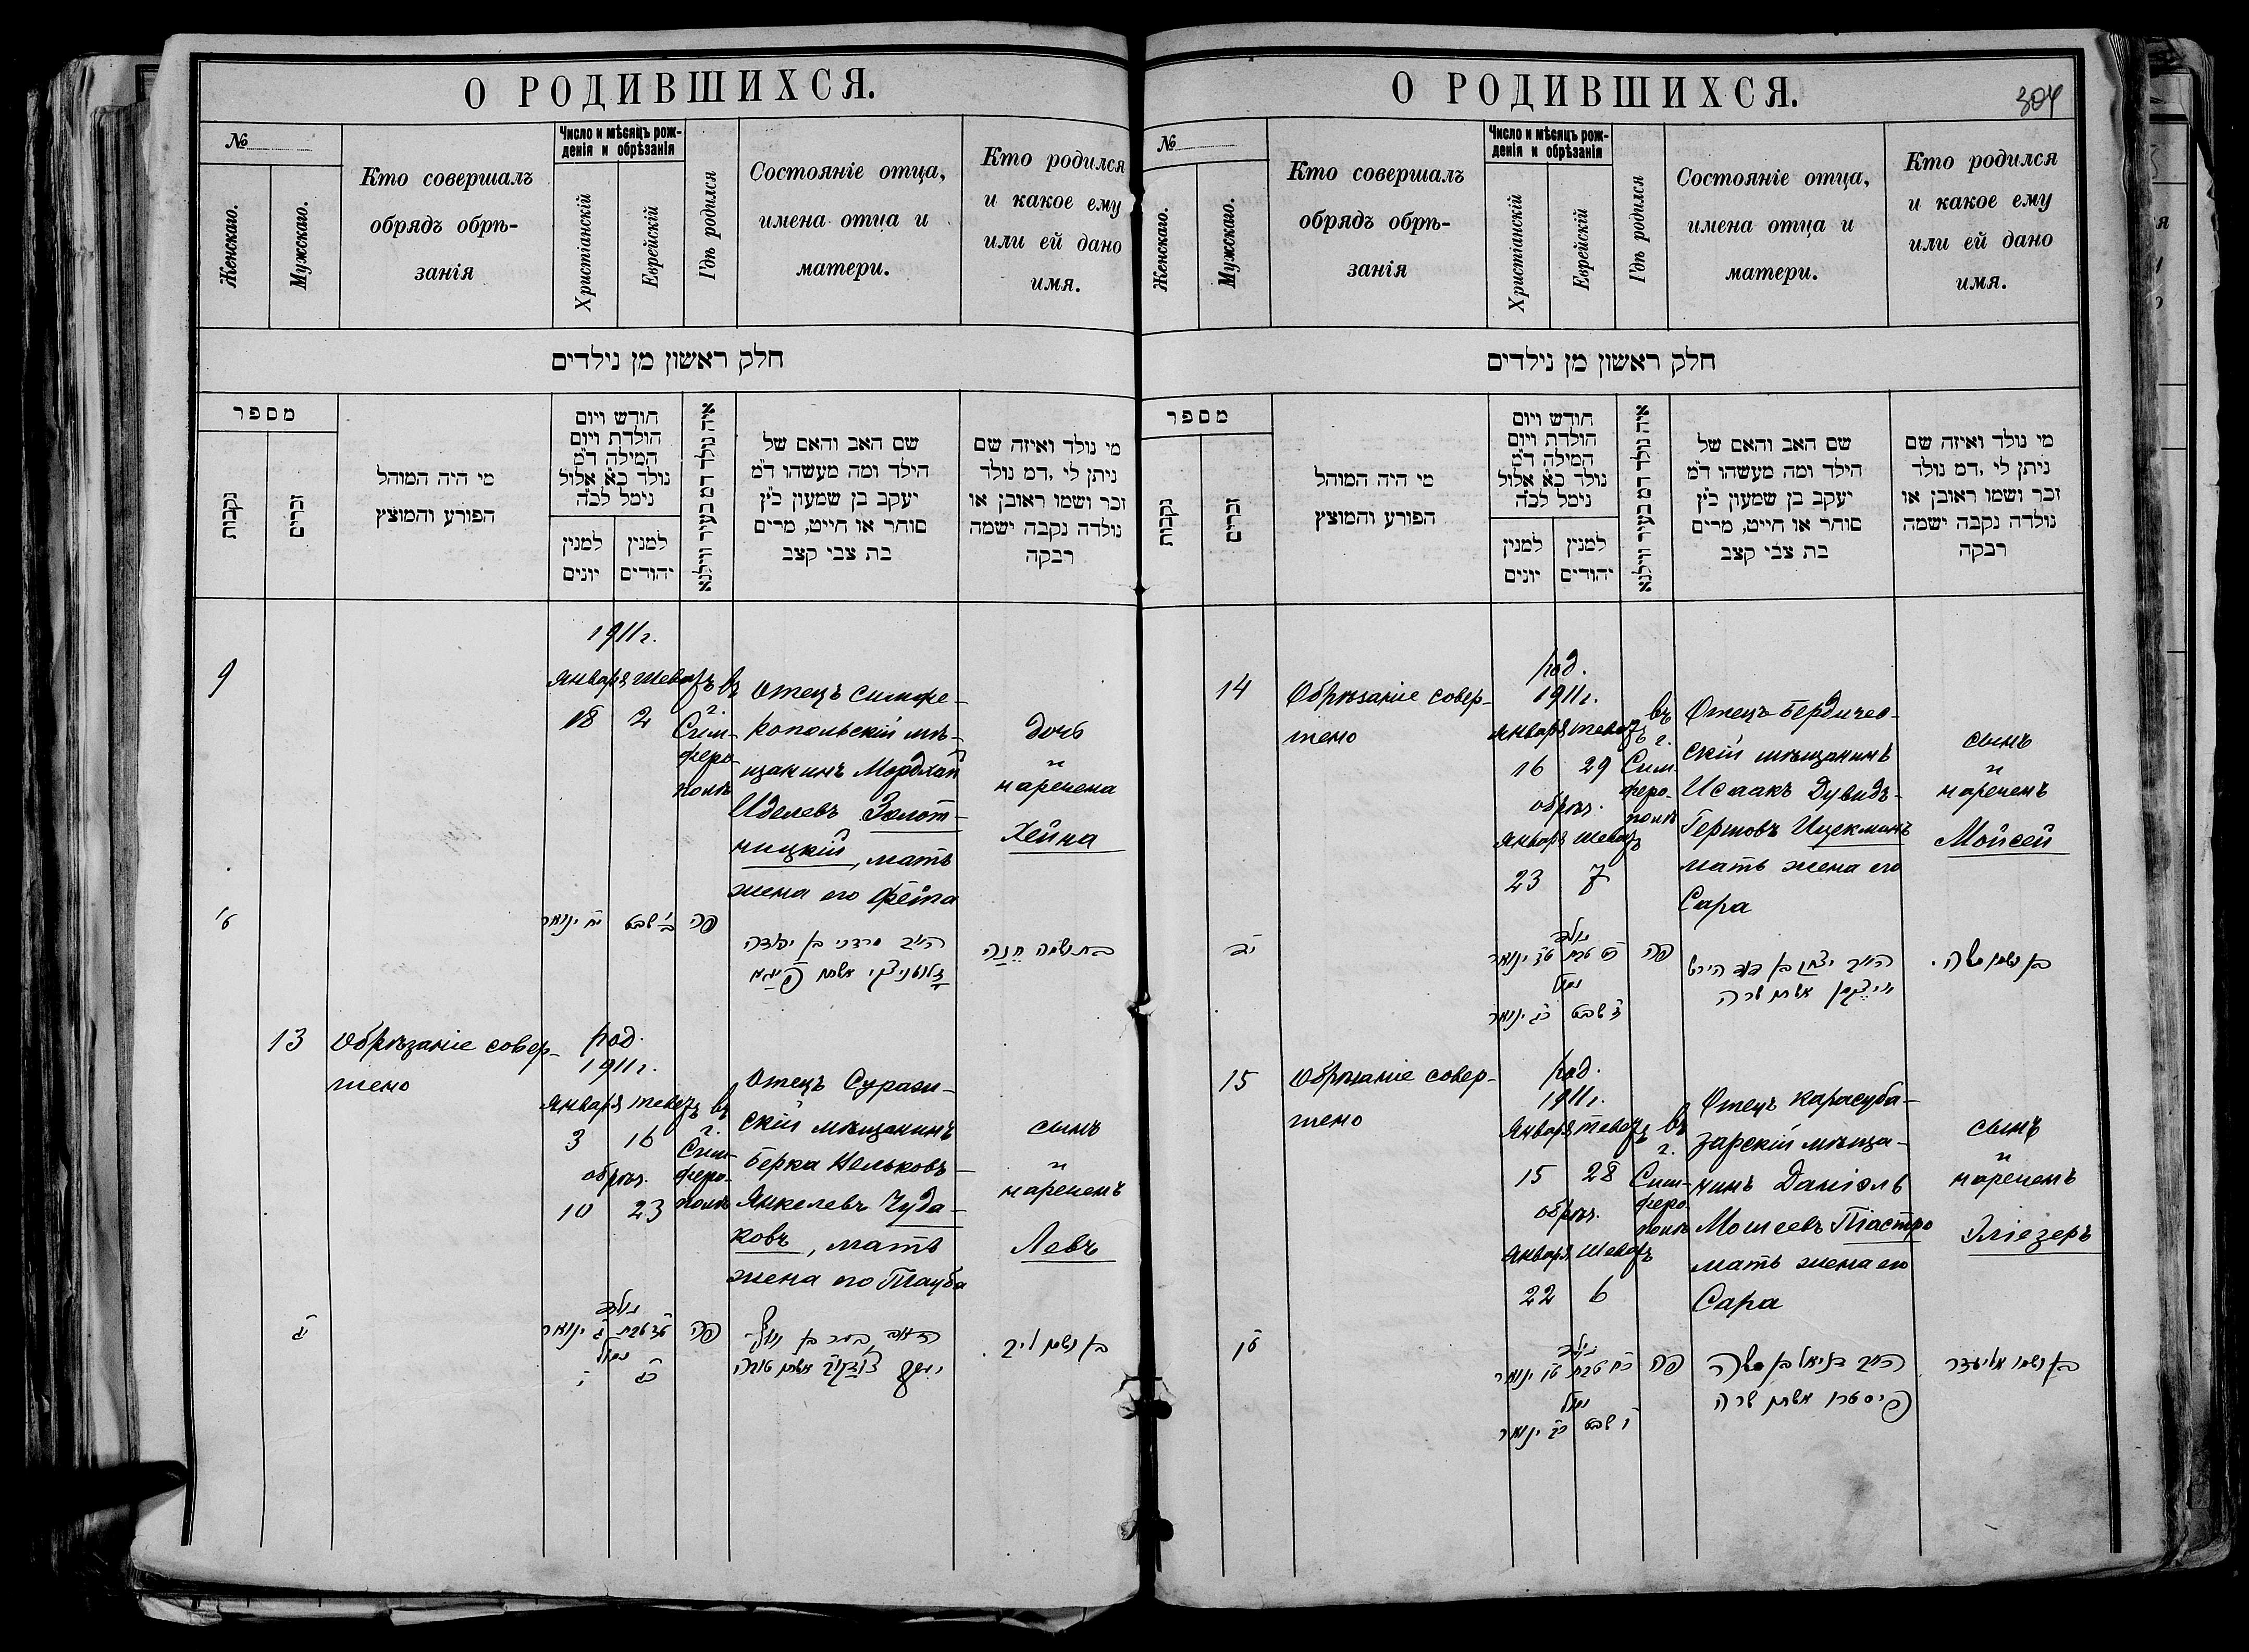 О РОДИВШИХСЯ.
№
Женскаго.
Мужскаго.
Кто совершалъ
обрядъ обрѣ-
занія
Число и мѣсяцъ рож-
денія и обрѣзанія
Христіанскій
Еврейскій
Гдѣ родился
Состояніе отца,
имена отца и
матери.
Кто родился
и какое ему
или ей дано
имя.
חלק ראשון מן נילדים
מספר
נקבות
זכרים
מי היה המוהל
הפורע והמוצץ
חודש ויום
הולדת ויום
המילה ד״מ
נולד כא אלול
נימל לכ״ה
למנין
יונים
למנין
יהודים
איה נולד דמ בעיר ווילנא
שם האב והאם של
הילד ומה מעשהו ד״מ
יעקב בן שמעון כ״ץ
סוחר או חייט, מרים
בת צבי קצב
מי נולד ואיזה שם
ניתן לי ,דמ נולד
זכר ושמו ראובן או
נולדה נקבה ישמה
רבקה
1911 г.
9
Января
18
Шеватъ
2
въ
г.
Сим-
феро-
полѣ
Отецъ Симфе-
ропольскій мѣ-
щанинъ Мордхай
Иделевъ Золот-
ницкій, мать
жена его Фейга
дочь
и
наречена
Хейна
יח ינואר
ב׳ שבט
פה
13
Обрѣзаніе совер-
шено
род.
1911 г.
Января
3
Теветъ
16
обрѣз.
10
23
въ
г.
Сим-
феро-
полѣ
Отецъ Сураж-
скій мѣщанинъ
Берка Нельковъ-
Янкелевъ Чуда-
ковъ, мать
жена его Тауба
сынъ
и
нареченъ
Левъ
יג
נולד
ט״ז טבת
ג׳ ינואר
נמול
כג
י
פה
О РОДИВШИХСЯ.
304
№
Женскаго.
Мужскаго.
Кто совершалъ
обрядъ обрѣ-
занія
Число и мѣсяцъ рож-
денія и обрѣзанія
Христіанскій
Еврейскій
Гдѣ родился
Состояніе отца,
имена отца и
матери.
Кто родился
и какое ему
или ей дано
имя.
חלק ראשון מן נילדים
מספר
נקבות
זכרים
מי היה המוהל
הפורע והמוצץ
חודש ויום
הולדת ויום
המילה ד״מ
נולד כא אלול
נימל לכ״ה
למנין
יונים
למנין
יהודים
איה נולד דמ בעיר ווילנא
שם האב והאם של
הילד ומה מעשהו ד״מ
יעקב בן שמעון כ״ץ
סוחר או חייט, מרים
בת צבי קצב
מי נולד ואיזה שם
ניתן לי ,דמ נולד
זכר ושמו ראובן או
נולדה נקבה ישמה
רבקה
14
Обрѣзаніе совер-
шено
род.
1911 г.
Января
16
Теветъ
29
обрѣз.
Января
23
Шеватъ
7
въ
г.
Сим-
феро-
полѣ
Отецъ Бердичев-
скій мѣщанинъ
Исаакъ Дувидъ-
Гершовъ Ицекманъ
мать жена его
Сара
сынъ
и
нареченъ
Мойсей
נולד
כט טבת
טז ינואר
נמול
ז שבט
כג ינואר
פה
הוא׳ יצחק בן דוד הירש
איצקמן אשתו שרה
בן ושמו משה.
15
Обрѣзаніе совер-
шено
род.
1911 г.
Января
15
Теветъ
28
обрѣз.
Января
22
Шеватъ
6
въ
г.
Сим-
феро-
полѣ
Отецъ Карасуба-
зарскій мѣща-
нинъ Даніэль
Мошеевъ Піастро
мать жена его
Сара
сынъ
и
нареченъ
Эліезеръ
טו
נולד
כח טבת
טו ינואר
נמול
ו שבט
כב ינואר
פה
פיסטרו אשתו שרה
בן ושמו אליעזר